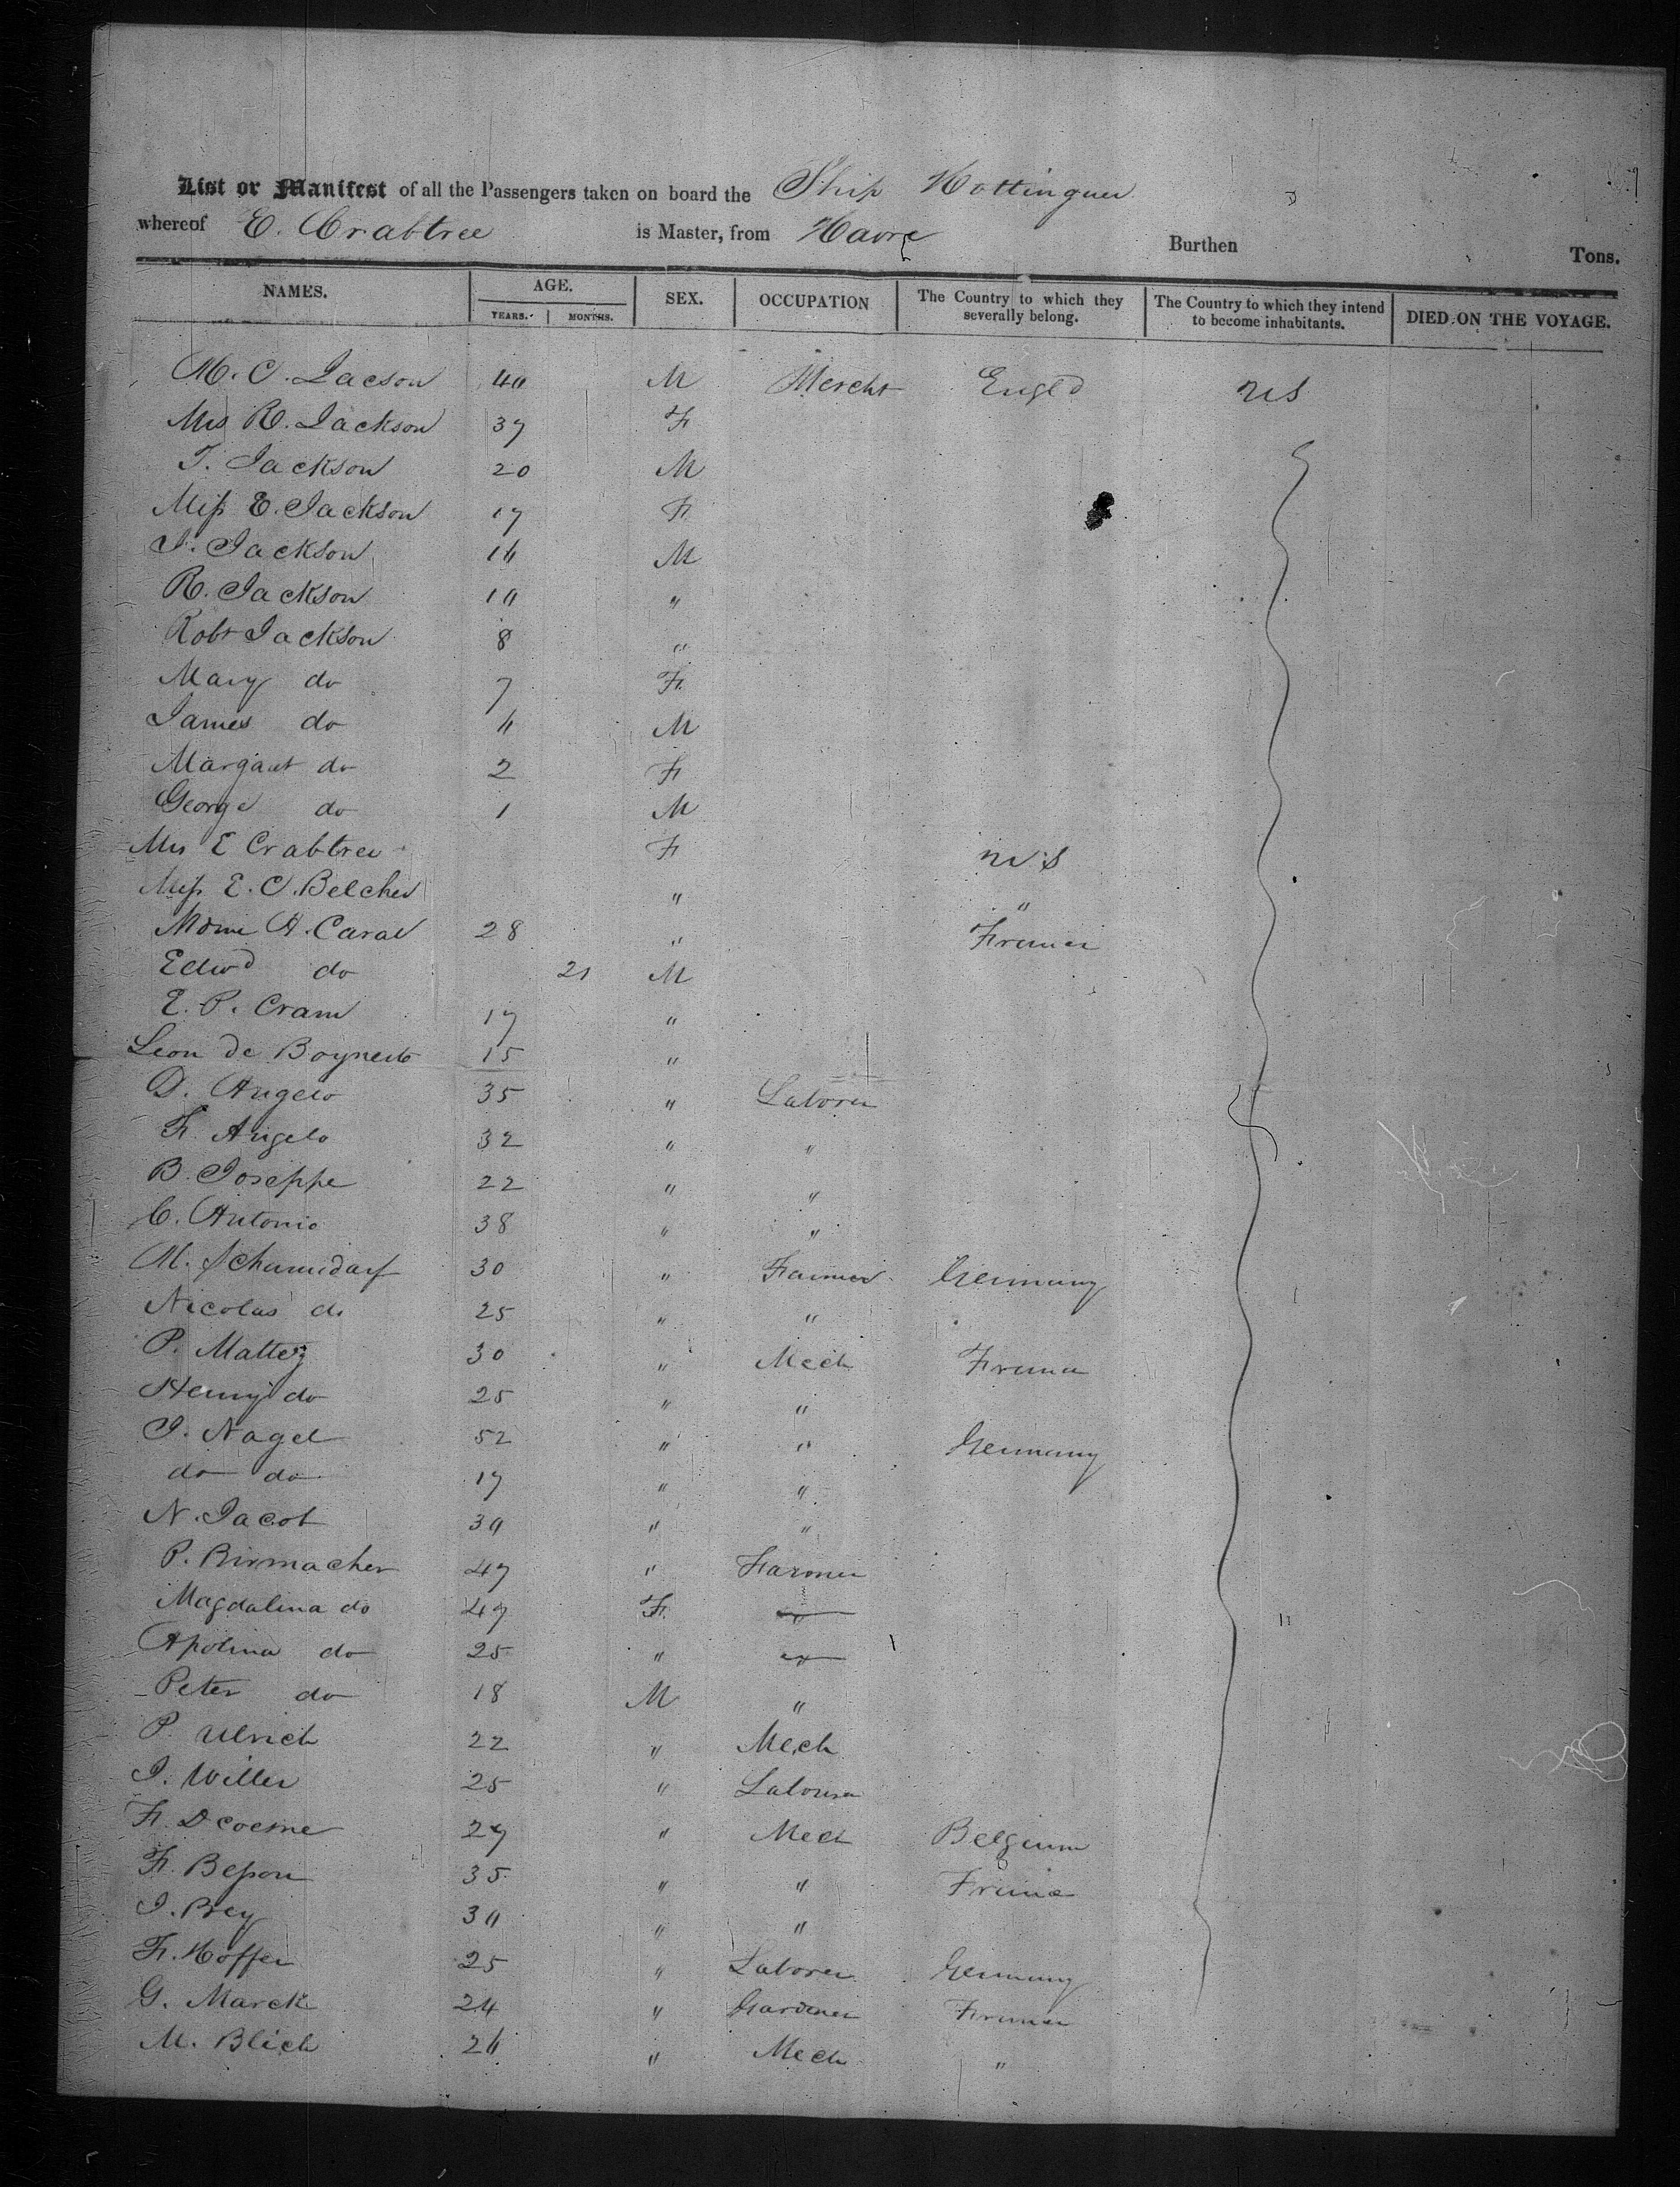 List or Manifest of all the Passengers taken on board the Ship Hottinguer
whereof E. Crabtree is Master, from Havre Burthen Tons.
NAMES. AGE. YEARS. MONTHS. SEX. OCCUPATION The Country to which they severally belong. The Country to which they intend to become inhabitants. DIED ON THE VOYAGE.
M. C. Jacson 40 M Mercht Engld US
Mrs R. Jackson 37 F
T. Jackson 20 M
Miss E. Jackson 17 F
J. Jackson M
R. Jackson 10 "
Robt Jackson 8 "
Mary do 7 F
James do M
Margaret do 2 F
George do 1 M
Mrs E Crabtree F US
Miss E. C. Belcher " "
Mdme A. Caral 28 " France
Edwd do 21 M
E. P. Cram 17 "
Leon de 15 "
D. Angelo 35 " Laborer
F. Angelo 32 " "
B. Joseppe 22 " "
C. Antonio 38 " "
M. 30 " Farmer Germany
Nicolas do 25 " "
P. Mattez 30 " Mech France
Henry do 25 " "
J. Nagel 52 " " Germany
do do 17 " "
N. Jacob 30 " "
P. Birmacher 47 " Farmer
Magdalina do 47 F "
Apolina do 25 " "
Peter do 18 M "
P. Ulrich 22 " Mech
J. Willer 25 " Laborer
F. Dcoesne 27 " Mech Belgium
F. Besson 35 " " France
J. Brey 30 " "
F. Hoffer 25 " Laborer Germany
G. Marck 24 " Gardener France
M. Blich " Mech "